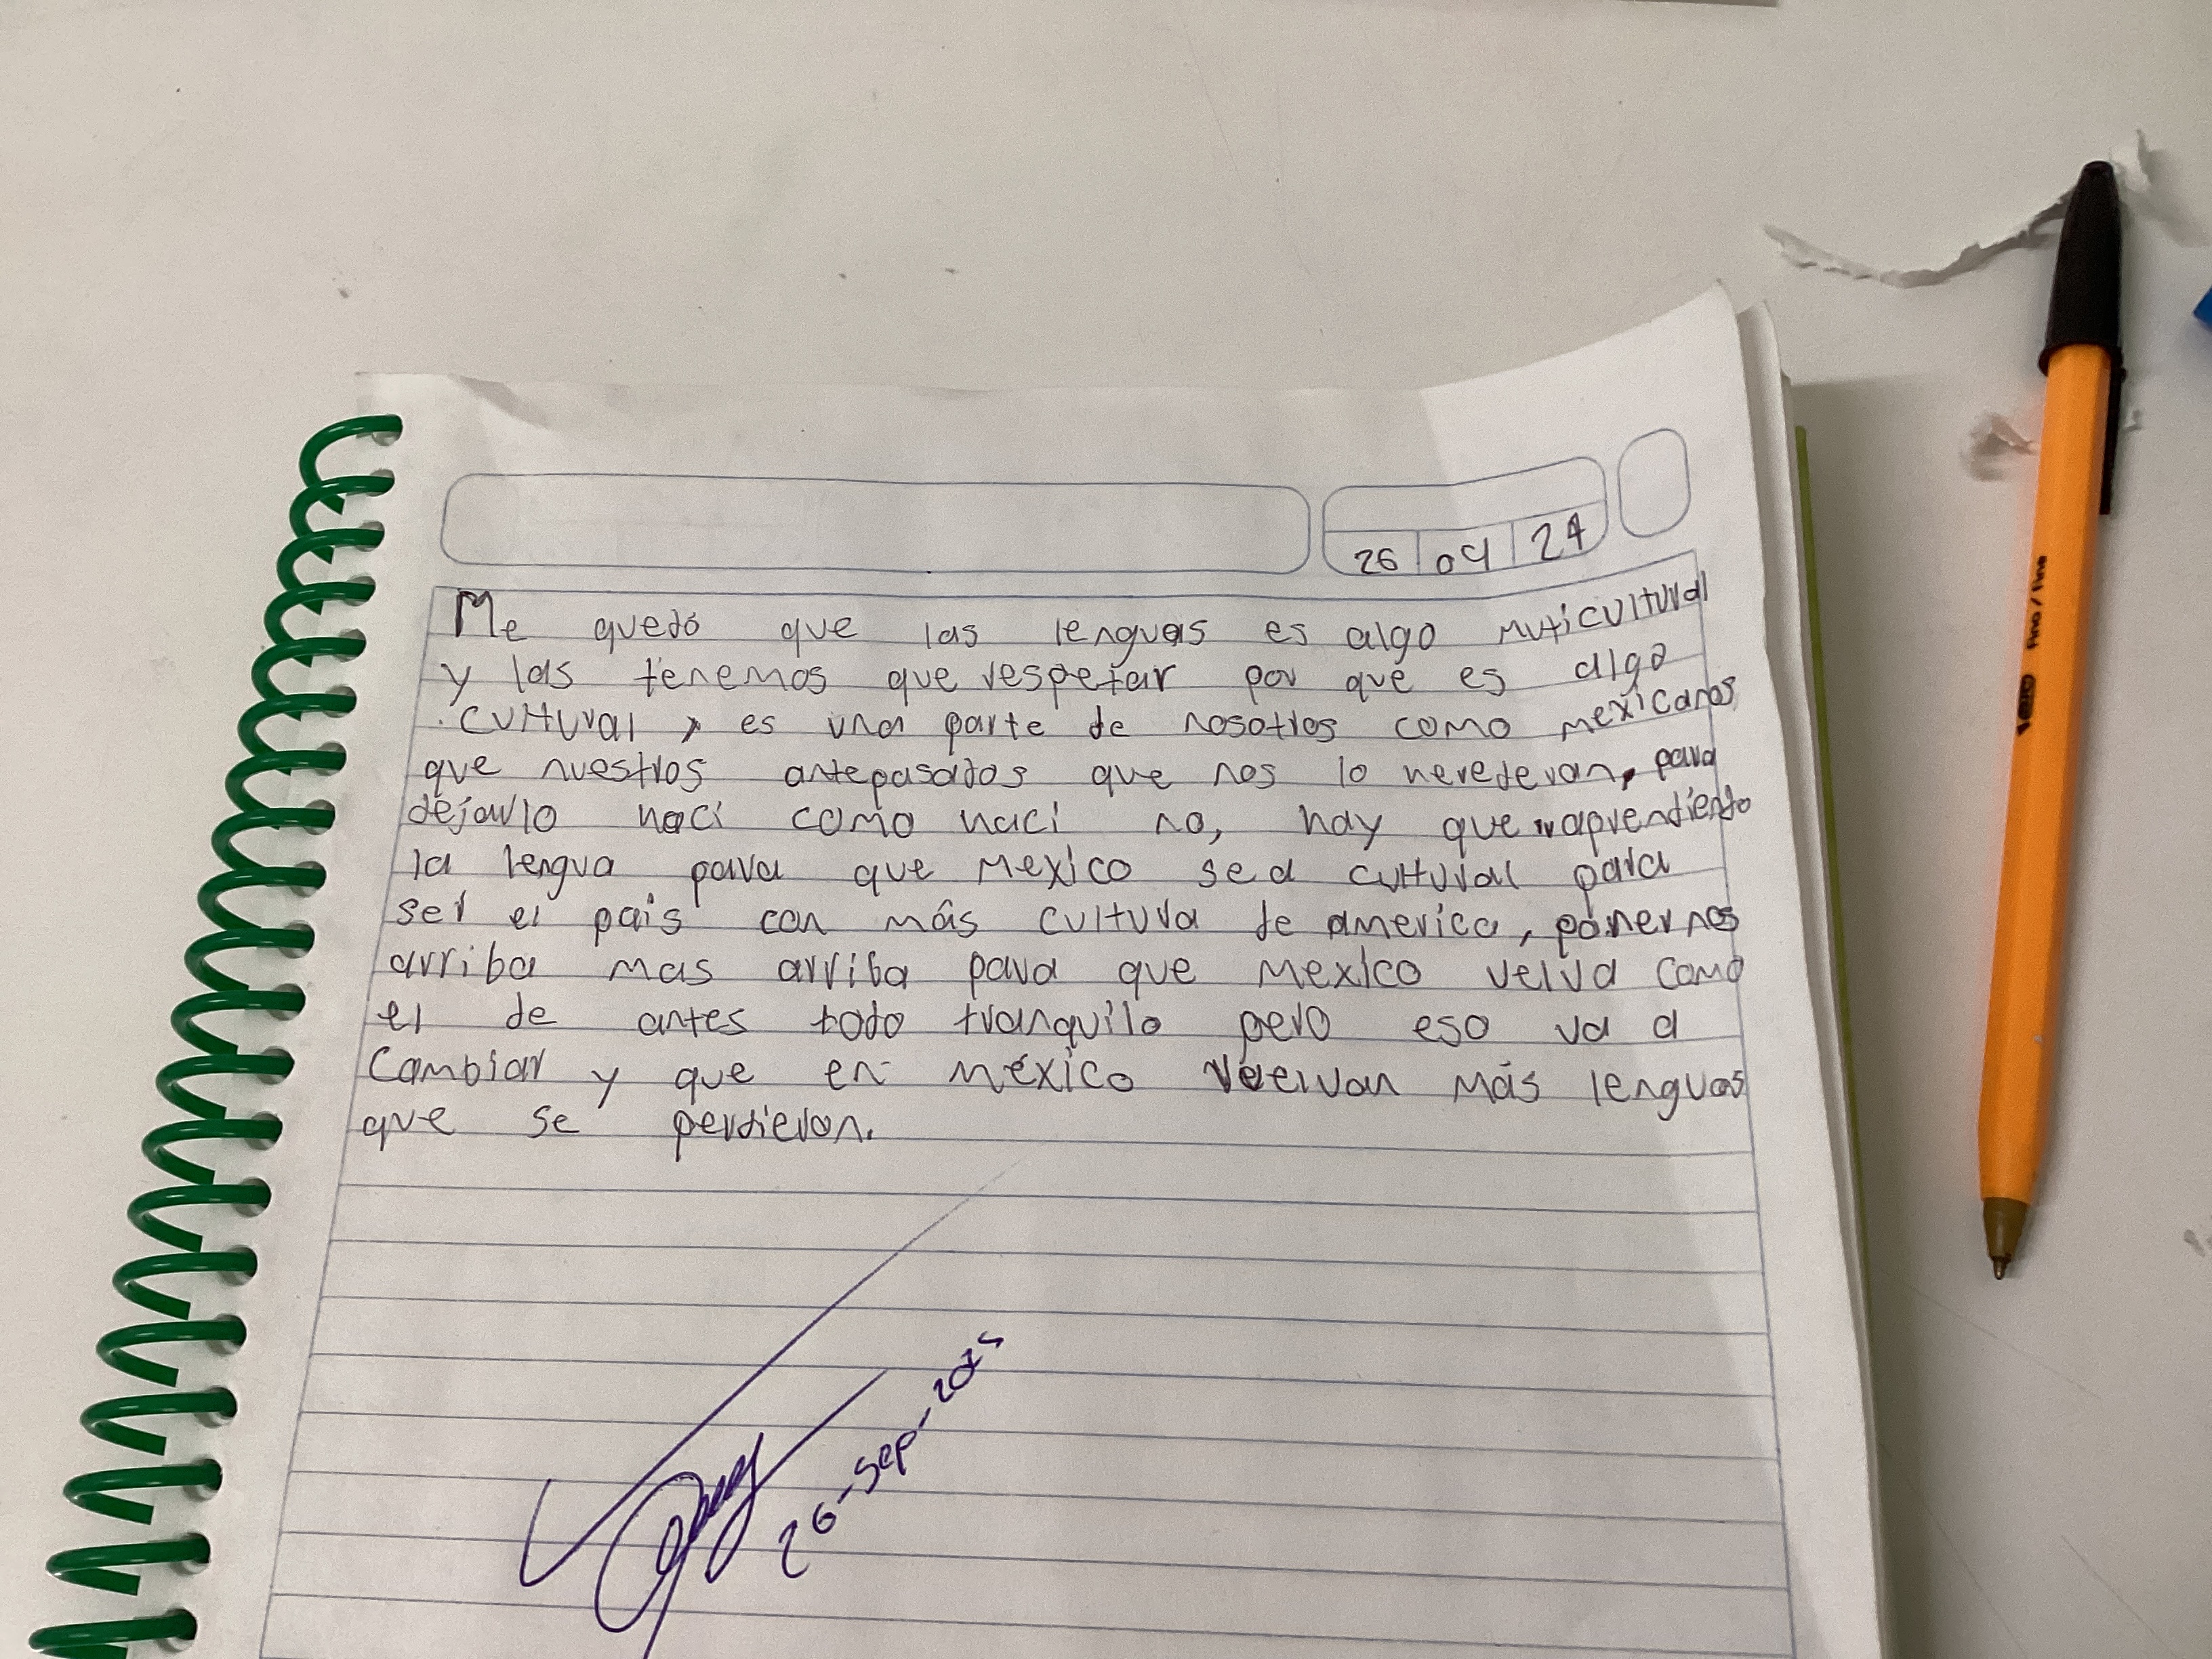 26 04 24
Me quedó que las lenguas es algo muticultural
y las tenemos que respetar por que es algo
cultural, es una parte de nosotros como mexicanos,
que nuestros antepasados que nos lo herederan, para
dejarlo haci como haci no, hay que aprendiendo
la lengua para que Mexico sea cultural para
ser el pais con más cultura de america, ponernos
arriba mas arriba para que Mexico velva como
el de antes todo tranquilo pero eso va a
Cambiar y que en México veelvan más lenguas
que se perdieron.
26-Sep-20
BIC Fino / Fine